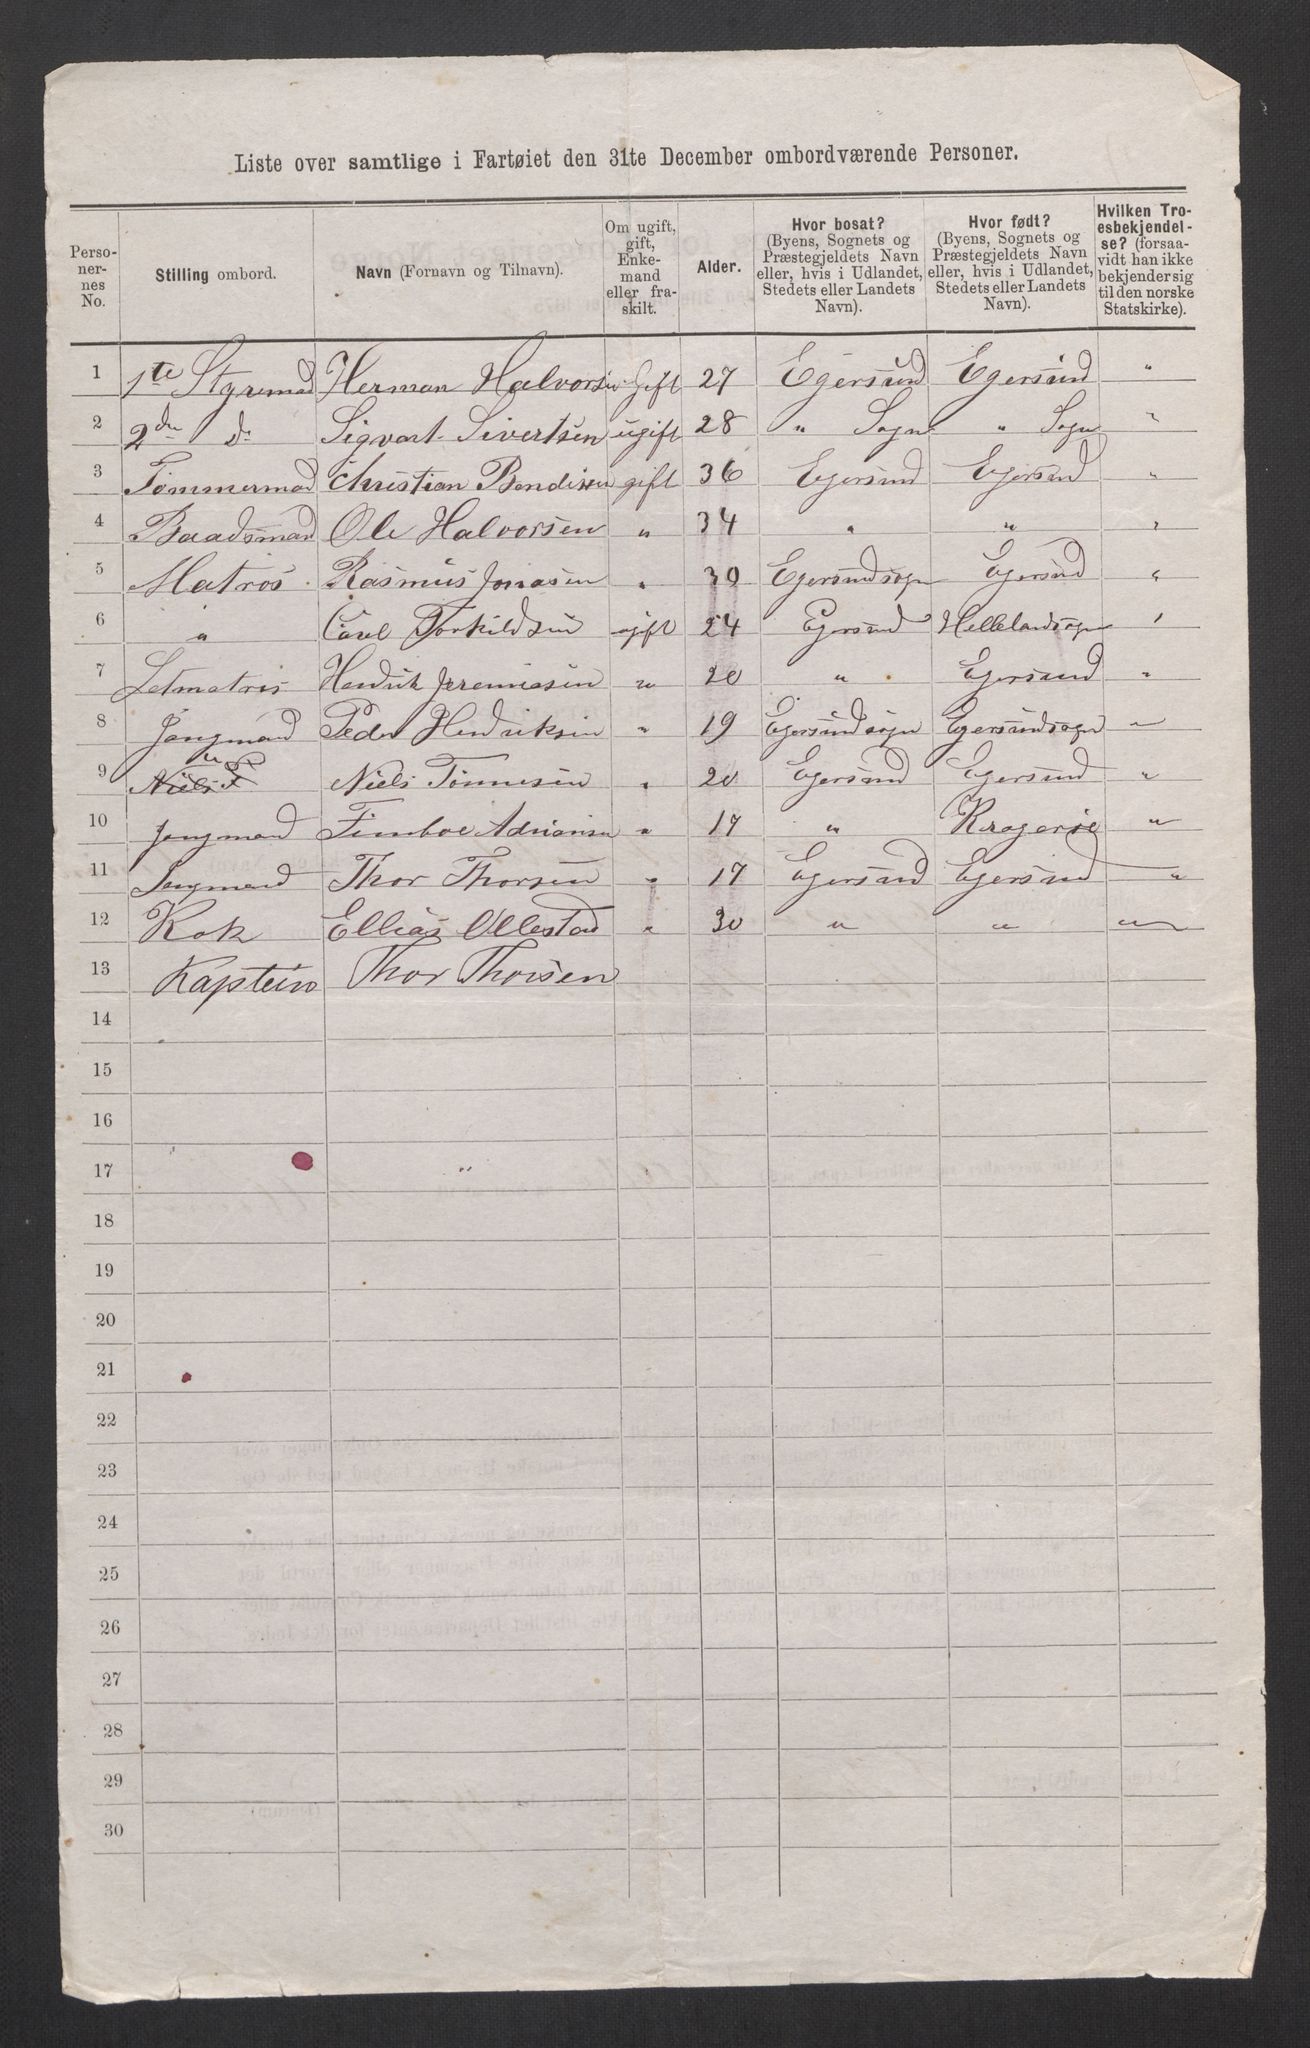 Liste over samtlige i Fartøiet den 31te December ombordværende Personer.
Personernes No. | Stilling ombord. | Navn (Fornavn og Tilnavn). | Om ugift, gift, Enkemand eller fraskilt. | Alder. | Hvor bosat? (Byens, Sognets og Præstegjeldets Navn eller, hvis i Udlandet, Stedets eller Landets Navn). | Hvor født? (Byens, Sognets og Præstegjeldets Navn eller, hvis i Udlandet, Stedets eller Landets Navn). | Hvilken Troesbekjendelse? (forsaavidt han ikke bekjender sig til den norske Statskirke).
1 1te Styrmad Herman Halvorsen Gift 27 Egersund Egersund "
2 2den do Sigvart Sivertsen ugift 28 " Sogn " Sogn "
3 Tømmermad Christian Bendixen gift 36 Egersund Egersund "
4 Baadsmand Ole Halvorsen " 34 " " "
5 Matros Rasmus Jonasen " 39 Egersundsogn Egersund "
6 " Carl Torkildsen ugift 24 Egersund Hellelandsogn "
7 Letmatros Hendrik Jeremiasen " 20 " Egersund "
8 Jungmand Peder Hendriksen " 19 Egersundsogn Egersundsogn "
9 Niels Tønnesen " 20 Egersund Egersund "
10 Jungmand Adriansen " 17 " Kragerøe "
11 Jungmand Thor Thorsen " 17 Egersund Egersund "
12 Kok Ellias Ollestad " 30 " " "
13 Kaptein Thor Thorsen
14
15
16
17 "
18
19
20
21
22
23
24
25
26
27
28
29
30